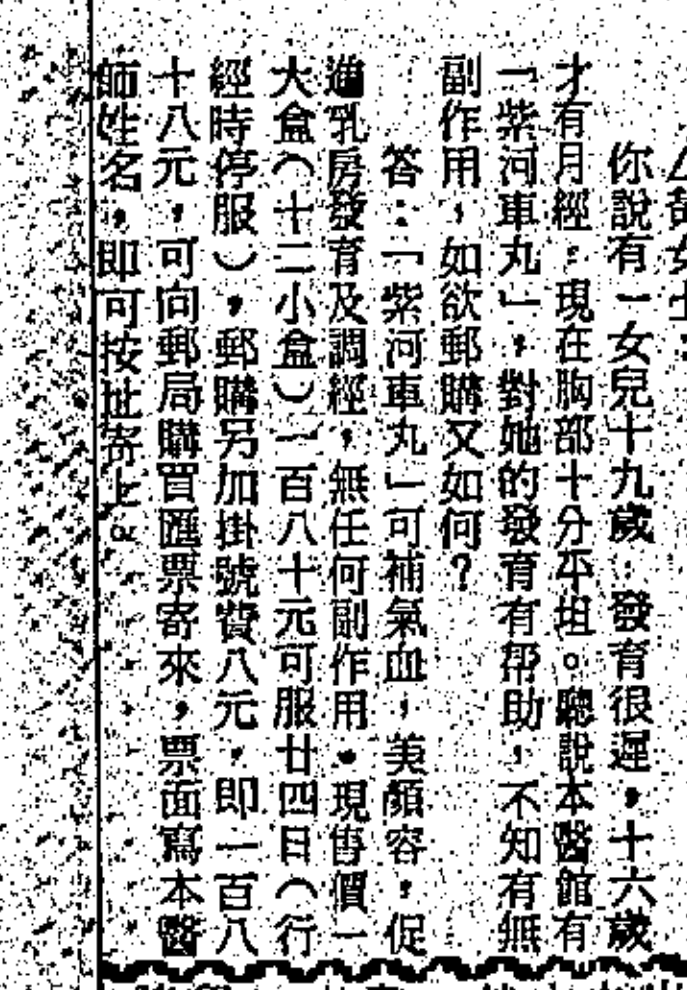 女士：
你說有一女兒十九歲，發育很遲，十六歲
才有月經。現在胸部十分平坦。聽說本醫館有
「紫河車丸」，對她的發育有帮助，不知有無
副作用，如欲郵購又如何？
答：「紫河車丸」可補氣血，美顏容，促
進乳房發育及調經，無任何副作用。現售價一
大盒（十二小盒）一百八十元可服廿四日（行
經時停服），郵購另加掛號費八元，即一百八
十八元，可向郵局購買匯票寄來，票面寫本醫
師姓名，即可按址寄上。